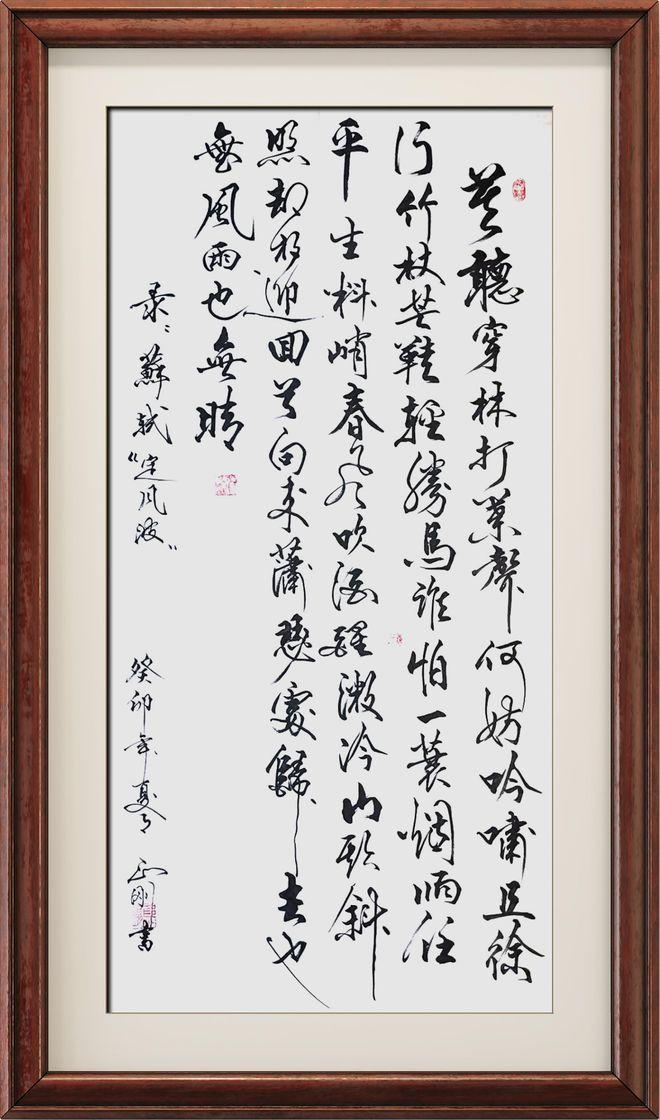 莫聽穿林打葉聲何妨吟嘯且徐
行竹杖芒鞋輕勝馬誰怕一蓑烟雨任
平生料峭春风吹酒醒微冷山頭斜
照却相迎回首向來蕭瑟處歸去也
無風雨也無晴
录：蘇軾“定风波”
癸卯年夏月 正刚書